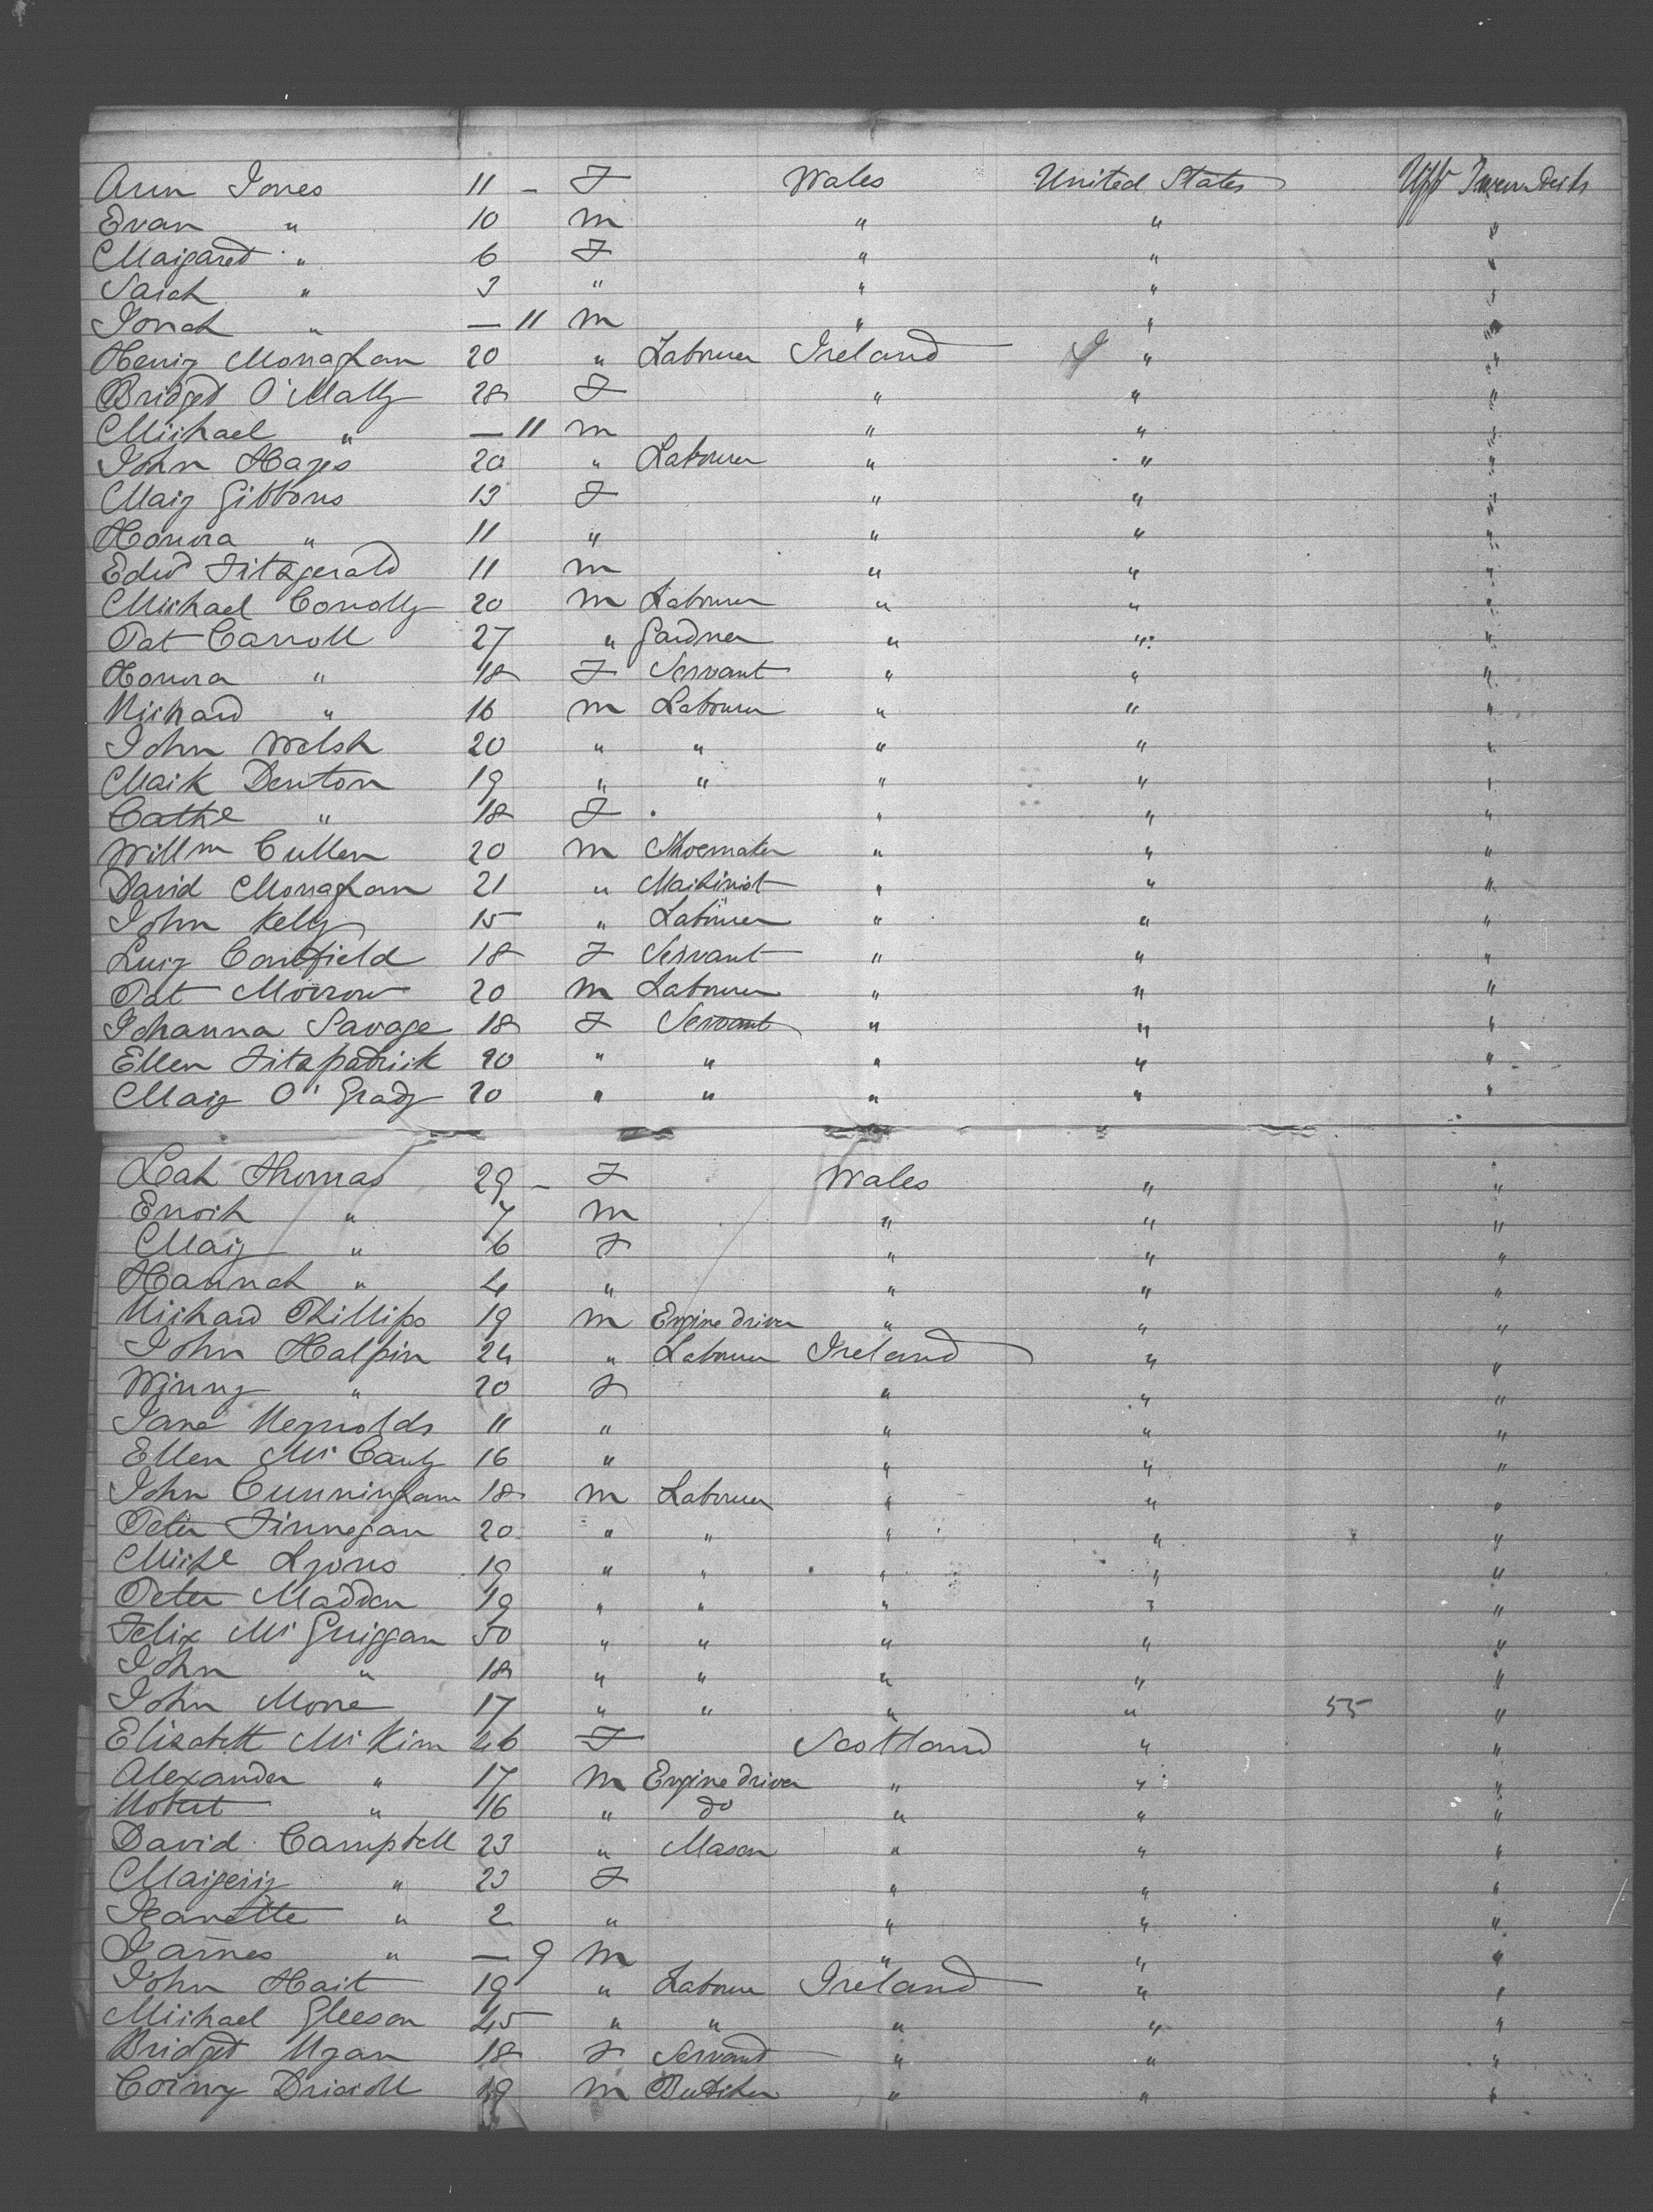 Ann Jones 11 - F Wales United States Upr Tween Decks
Evan " 10 m " " "
Margaret " 6 F " " "
Sarah " 3 " " " "
Jonah " — 11 m " " "
Henry Monaghan 20 " Labourer Ireland " "
Bridget O'Mally 28 F " " "
Michael " — 11 m " " "
John Hayes 20 " Labourer " " "
Mary Gibbons 13 F " " "
Honora " 11 " " " "
Edwd Fitzgerald 11 m " " "
Michael Conolly 20 m Labourer " " "
Pat Carroll 27 " Gardner " " "
Honora " 18 F Servant " " "
Richard " 16 m Labourer " " "
John Welsh 20 " " " " "
Mark Denton 19 " " " " "
Cathe " 18 F " " "
Willm Cullen 20 m Shoemaker " " "
David Monaghan 21 " Machinist " " "
John Kelly 15 " Labourer " " "
Lucy Confield 18 F Servant " " "
Pat Morrow 20 m Labourer " " "
Johanna Savage 18 F Servant " " "
Ellen Fitzpatrick 20 " " " " "
Mary O'Grady 20 " " " " "
Leah Thomas 29 - F Wales " "
Enoch " 7 m " " "
Mary " 6 F " " "
Hannah " 4 " " " "
Richard Phillips 19 m Engine driver " " "
John Halpin 24 " Labourer Ireland " "
Winny " 20 F " " "
Jane Reynolds 11 " " " "
Ellen McCarty 16 " " " "
John Cunningham 18 m Labourer " " "
Peter Finnegan 20 " " " " "
Michl Lyons 19 " " " " "
Peter Madden 19 " " " " "
Felix McGuiggan 50 " " " " "
John " 18 " " " " "
John Moore 17 " " " " 55 "
Elizabeth McKim 46 F Scotland " "
Alexander " 17 m Engine driver " " "
Robert " 16 " do " " "
David Campbell 23 " Mason " " "
Margery " 23 F " " "
Jeanette " 2 " " " "
James " — 9 m " " "
John Hait 19 " Labourer Ireland " "
Michael Gleeson 45 " " " " "
Bridget Ryan 18 F Servant " " "
Corny Driscoll 19 m Butcher " " "